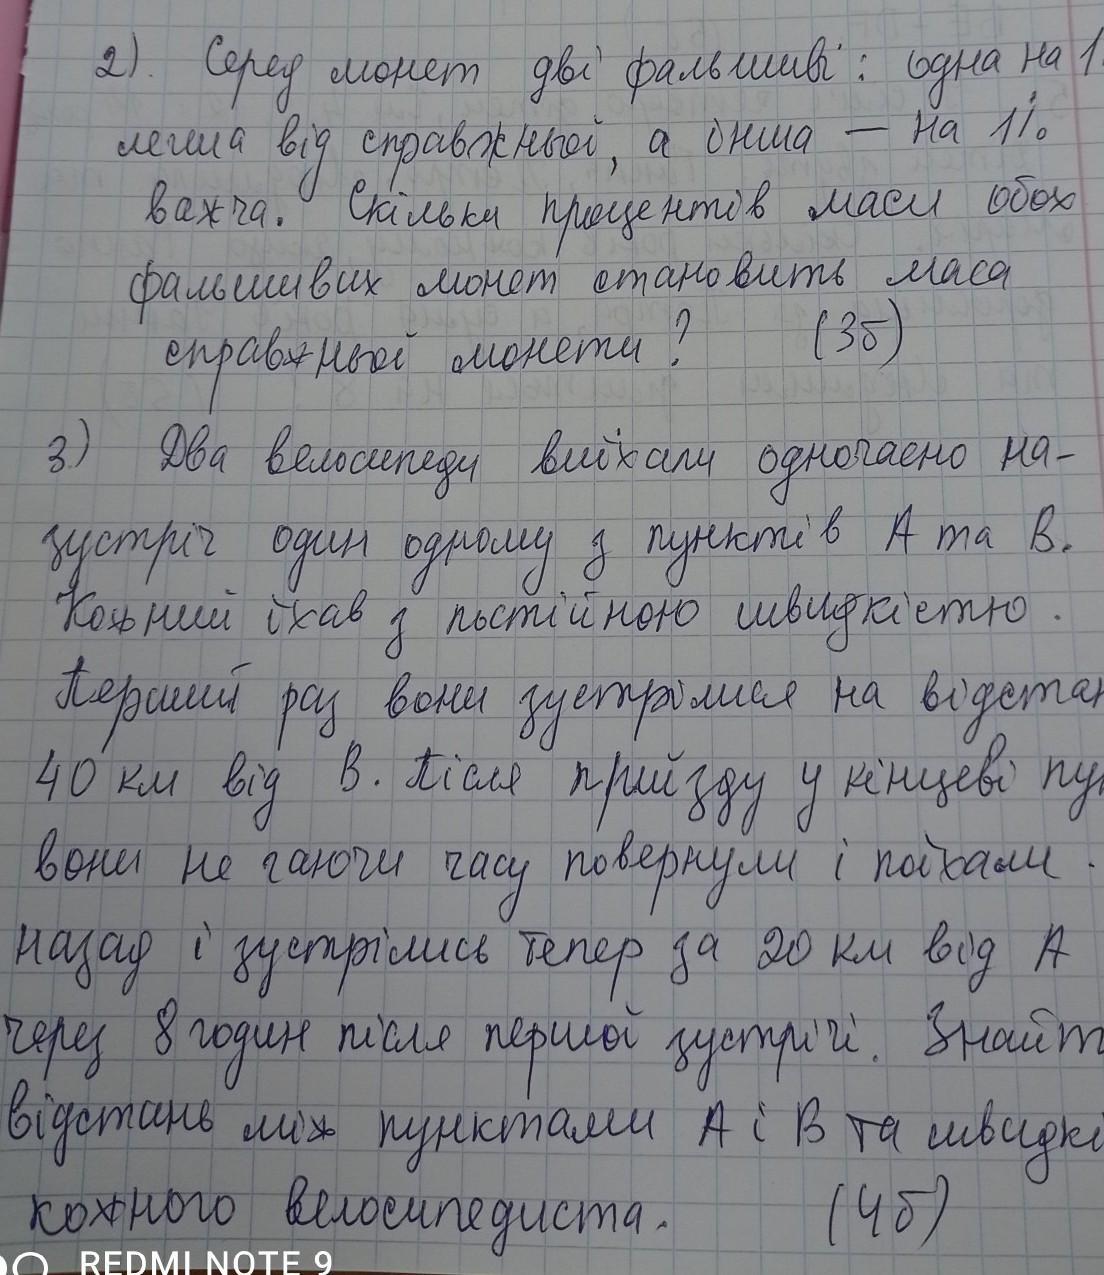 2). Серед монет дві фальшиві: одна на 1
легша від справжньої, а інша – на 1%
важча. Скільки процентів маси обох
фальшивих монет становить маса
справжньої монети? (3б)
3) Два велосипеди виїхали одночасно на-
зустріч один одному з пунктів А та В.
Кожний їхав з постійною швидкістю.
Перший раз вони зустрілися на відстан
40 км від В. Після приїзду у кінцеві пу
вони не гаючи часу повернули і поїхали
назад і зустрілись тепер за 20 км від А
через 8 годин після першої зустрічі. Знайт
відстань між пунктами А і В та швидкі
кожного велосипедиста. (4б)
REDMI NOTE 9